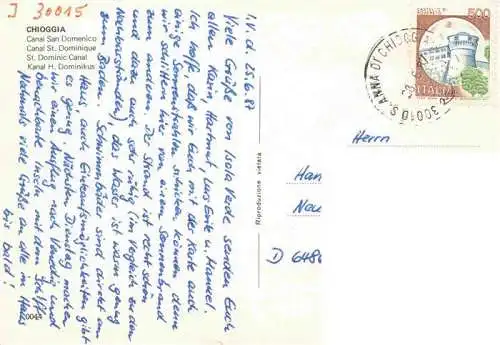 I 30015
CHIOGGIA
Canal San Domenico
Canal St. Dominique
St. Dominic Canal
Kanal H. Dominikus
I.V. d. 25.6.87
Viele Grüße von Isola Verde senden Euch
allen Karin, Hartmut, Luis Erik u. Manuel.
Ich hoffe, daß wir Euch mit der Karte auch
einige Sonnenstrahlen schicken können, denn
wir schlittern hier von einem Sonnenbrand
zum anderen. Der Strand ist recht schön
und dazu auch sehr ruhig (im Vergleich zu den
Nachbarstränden), das Wasser ist warm genug
zum Baden. Schwimmbäder sind direkt am
Haus, auch Einkaufsmöglichkeiten gibt
es genug. Nächsten Dienstag machen
wir einen Ausflug nach Venedig und
benachbarte Inseln mit dem Schiff.
Nochmals viele Grüße an alle im Haus
bis bald!
0044
Riproduzione vietata
500
ITALIA
30010 S. ANNA DI CHIOGGIA
Herrn
Han
Neu
D 6480